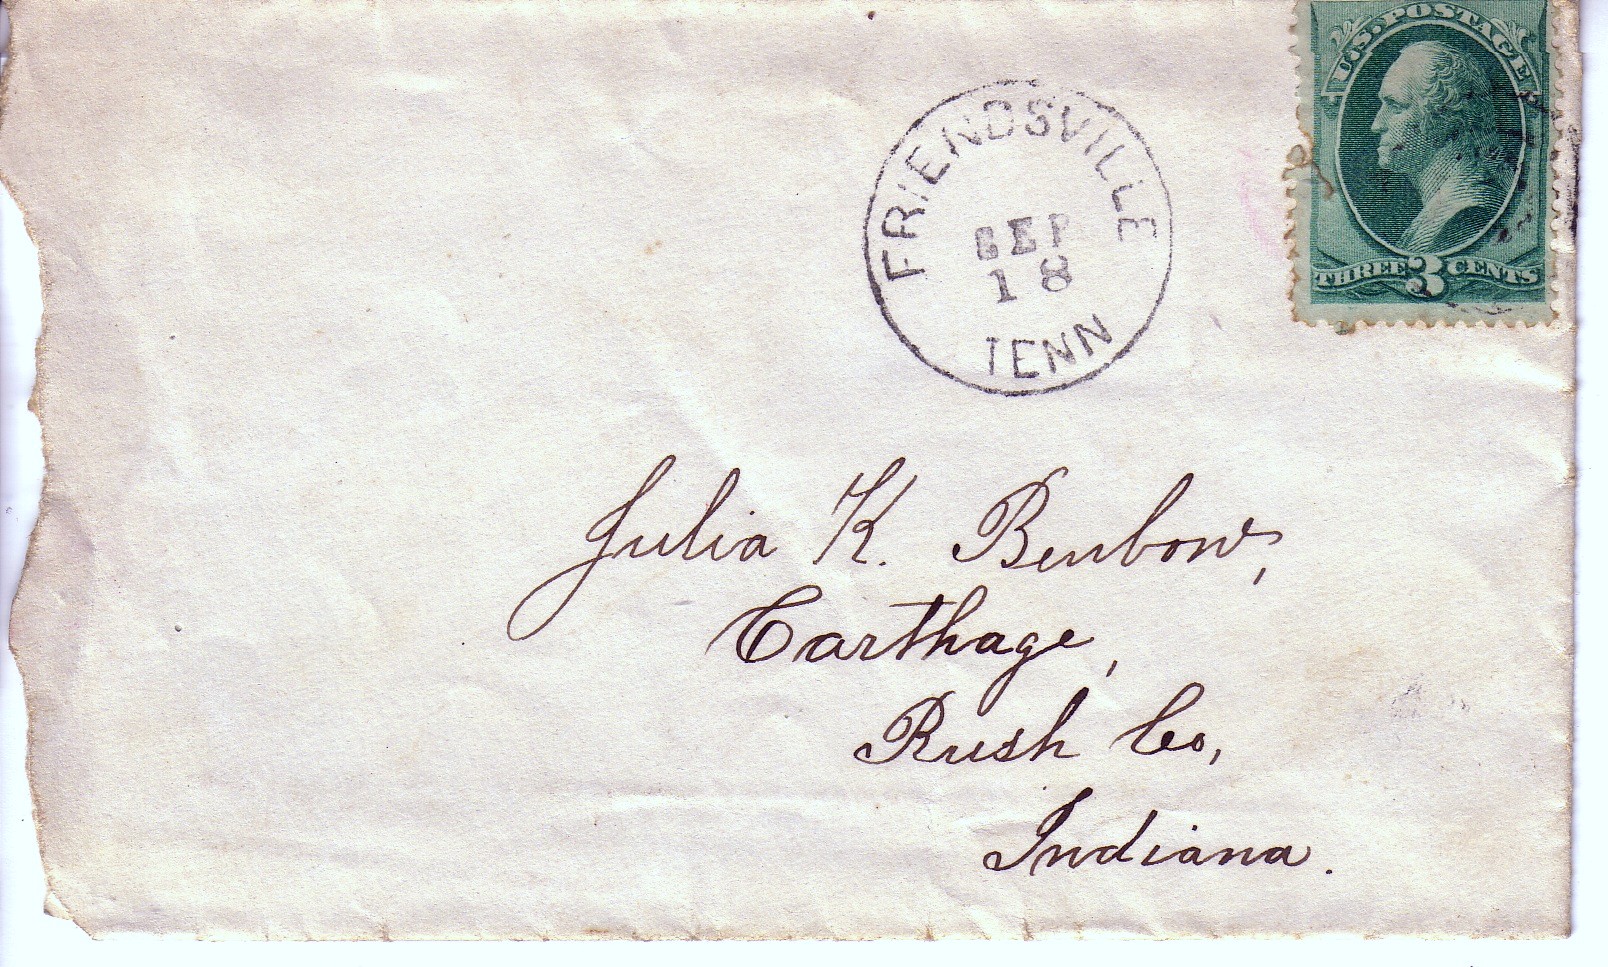 U.S. POSTAGE
THREE 3 CENTS
FRIENDSVILLE
SEP
18
TENN
Julia K. Benbow,
Carthage,
Rush Co,
Indiana.